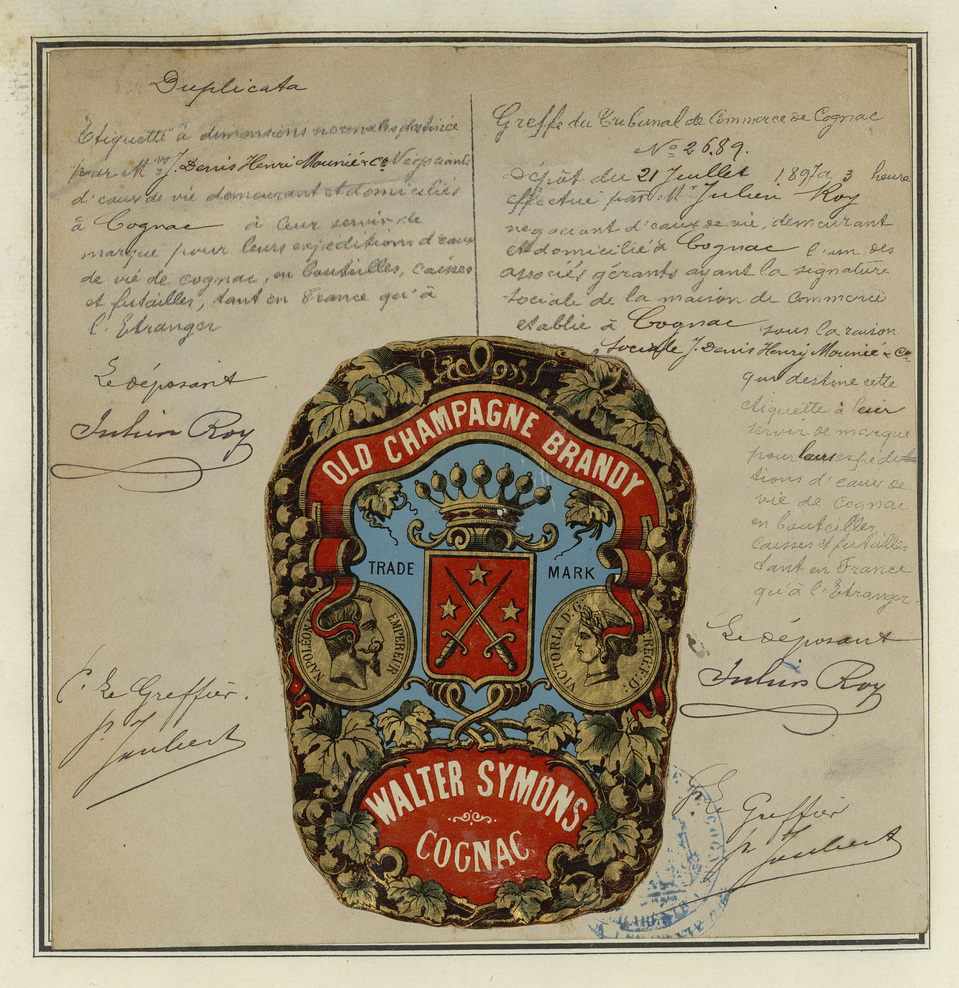 Duplicata
Etiquette à dimensions normales destinée
par M.rs J. Denis Henri Mounié & Co Negociants
d'eaux de vie demeurant et domiciliés
à Cognac à leur servir de
marque pour leurs expeditions d'eaux
de vie de cognac, en bouteilles, caisses
et futailles, tant en France qu'à
l'Etranger
Le déposant
Julien Roy
P. Le Greffier.
Joubert
Greffe du Tribunal de Commerce de Cognac
No 2689.
Dépôt du 21 Juillet 1897 à 3 heures
effectué par Mr Julien Roy
negociant d'eaux de vie, demeurant
et domicilié à Cognac l'un des
associés gérants ayant la signature
sociale de la maison de Commerce
etablie à Cognac sous la raison
sociale J. Denis Henry Mounié & Co
qui destine cette
etiquette à leur
servir de marque
pour leurs expédi-
tions d'eaux de
vie de cognac
en bouteilles,
caisses et futailles
tant en France
qu'à l'Etranger.
Le déposant
Julien Roy
P. Le Greffier
Joubert
OLD CHAMPAGNE BRANDY
TRADE MARK
NAPOLEON EMPEREUR
VICTORIA D: G: REG: F: D:
WALTER SYMONS
COGNAC